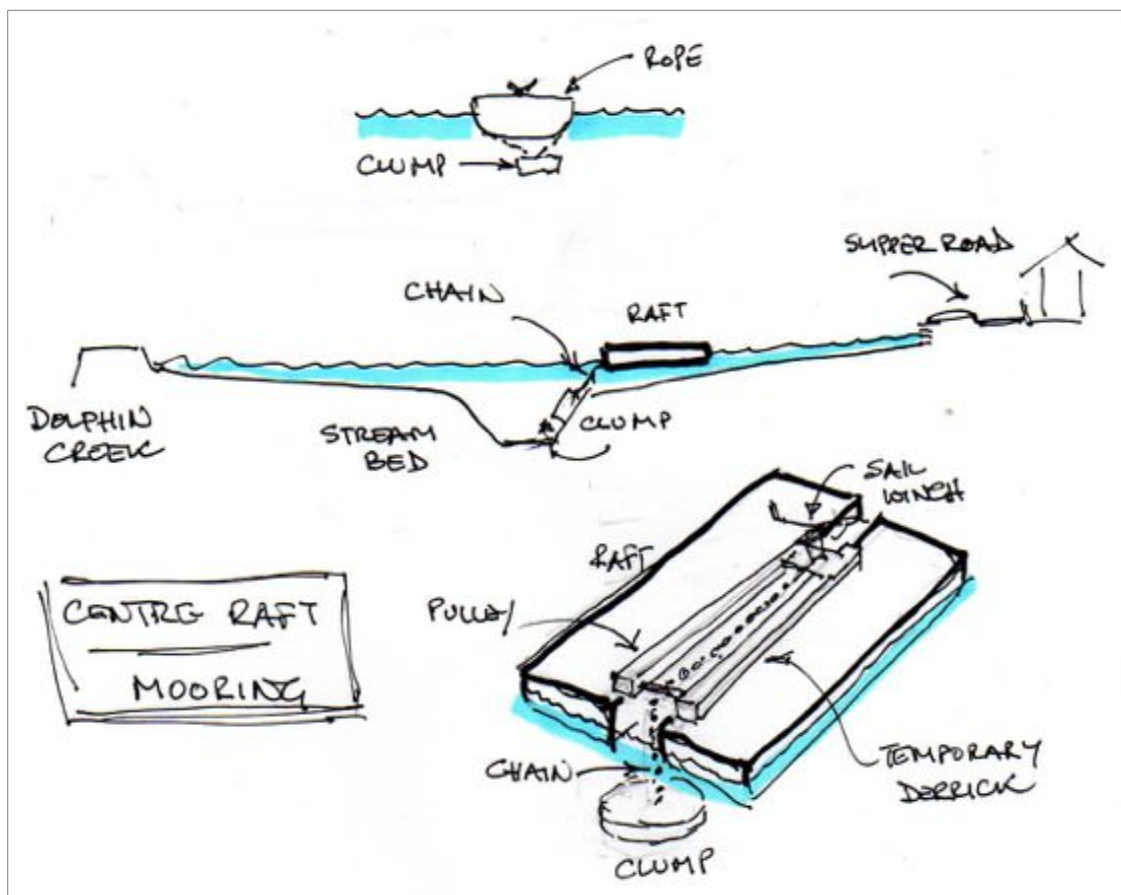 ROPE
CLUMP
SLIPPER ROAD
CHAIN
RAFT
DOLPHIN
CREEK
STREAM
BED
CLUMP
SAIL
WINCH
RAFT
PULLEY
CENTRE RAFT
MOORING
CHAIN
TEMPORARY
DERRICK
CLUMP